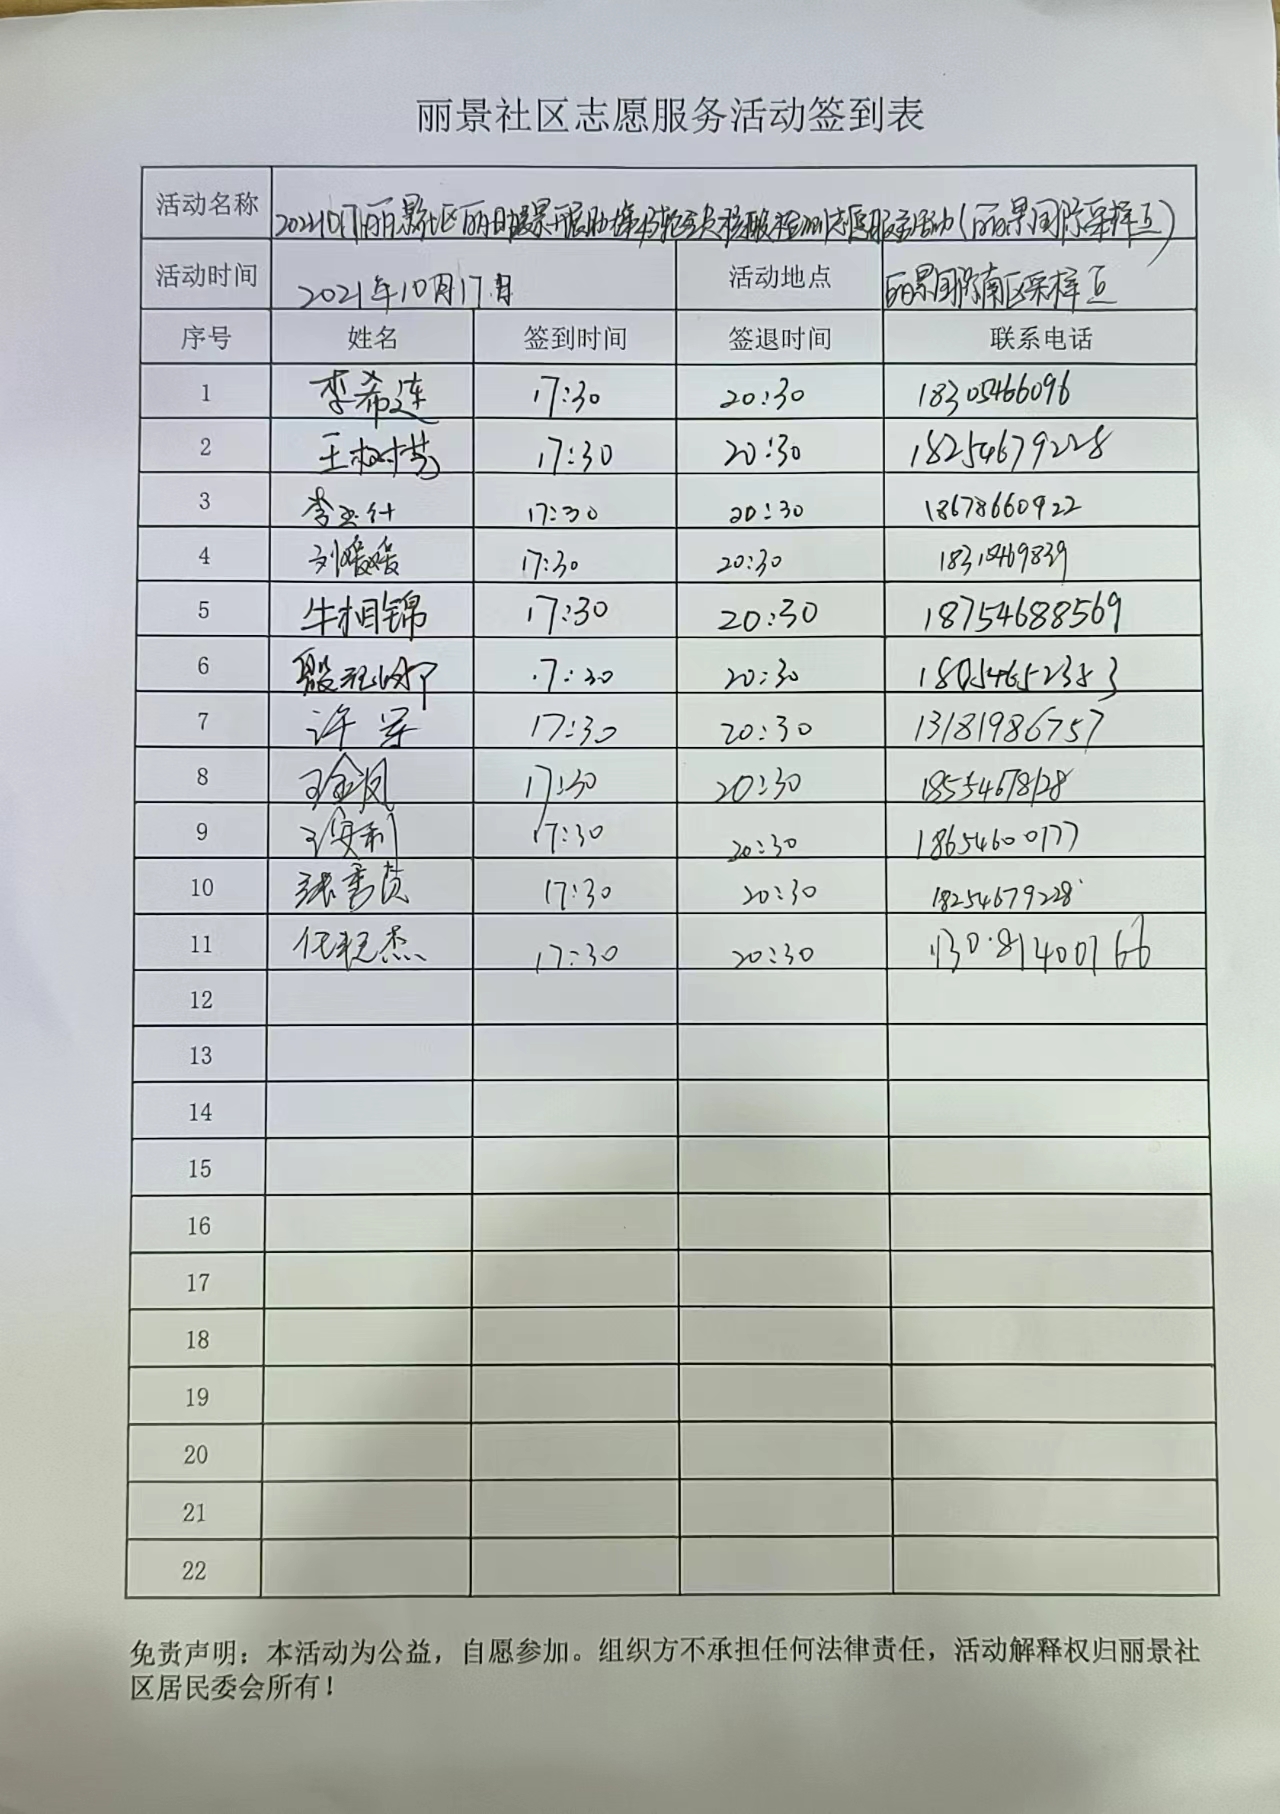 丽景社区志愿服务活动签到表
活动名称 20211017丽景社区丽日暖景开展助力第 轮全员核酸检测志愿服务活动(丽景国际采样点)
活动时间 2021年10月17日 活动地点 丽景国际南区采样点
序号 姓名 签到时间 签退时间 联系电话
1 李希连 17:30 20:30 18305466096
2 王树 17:30 20:30 18254679228
3 李 17:30 20:30 18678660922
4 刘媛媛 17:30 20:30
5 牛相锦 17:30 20:30 18754688569
6 殷 :30 20:30
7 许军 17:30 20:30 13181986757
8 王金凤 17:30 20:30 18554678128
9 王 利 17:30 20:30 18654600177
10 张秀贞 17:30 20:30 18254679228
11 任 杰 17:30 20:30
12
13
14
15
16
17
18
19
20
21
22
免责声明：本活动为公益，自愿参加。组织方不承担任何法律责任，活动解释权归丽景社
区居民委会所有！